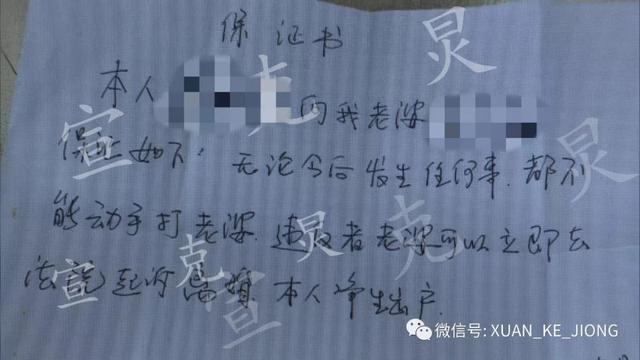 保证书
本人 向我老婆
保证如下: 无论今后发生任何事. 都不
能动手打老婆. 违反者老婆可以立即去
法院起诉离婚. 本人净生出户.
宣克炅
宣克炅
宣克炅
微信号: XUAN_KE_JIONG